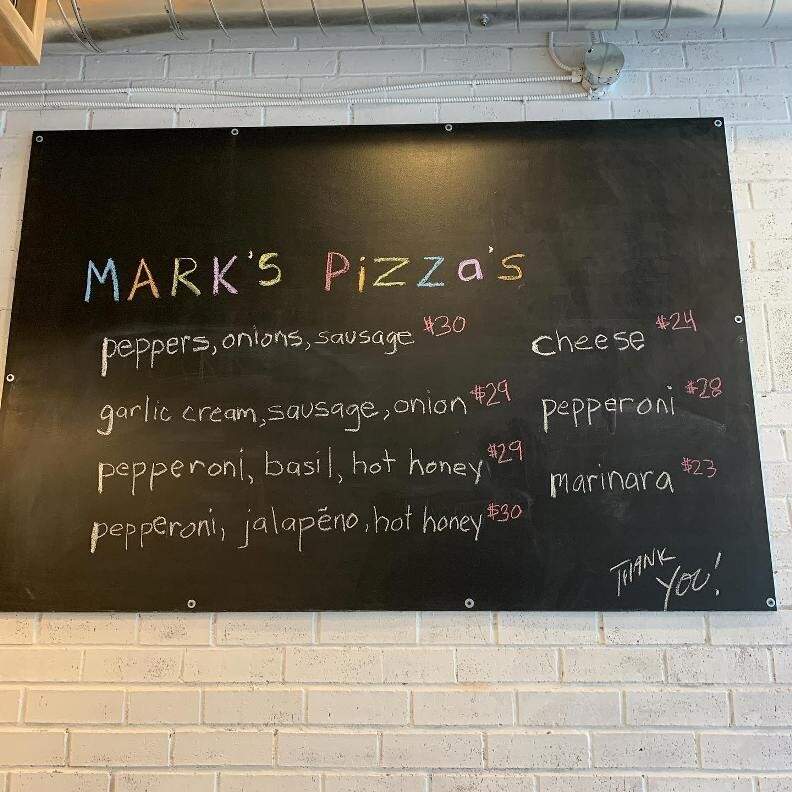 MARK'S PiZZa's
peppers, onions, sausage $30
garlic cream, sausage, onion $29
pepperoni, basil, hot honey $29
pepperoni, jalapēno, hot honey $30
cheese $24
pepperoni $28
marinara $23
THANK
YOU!